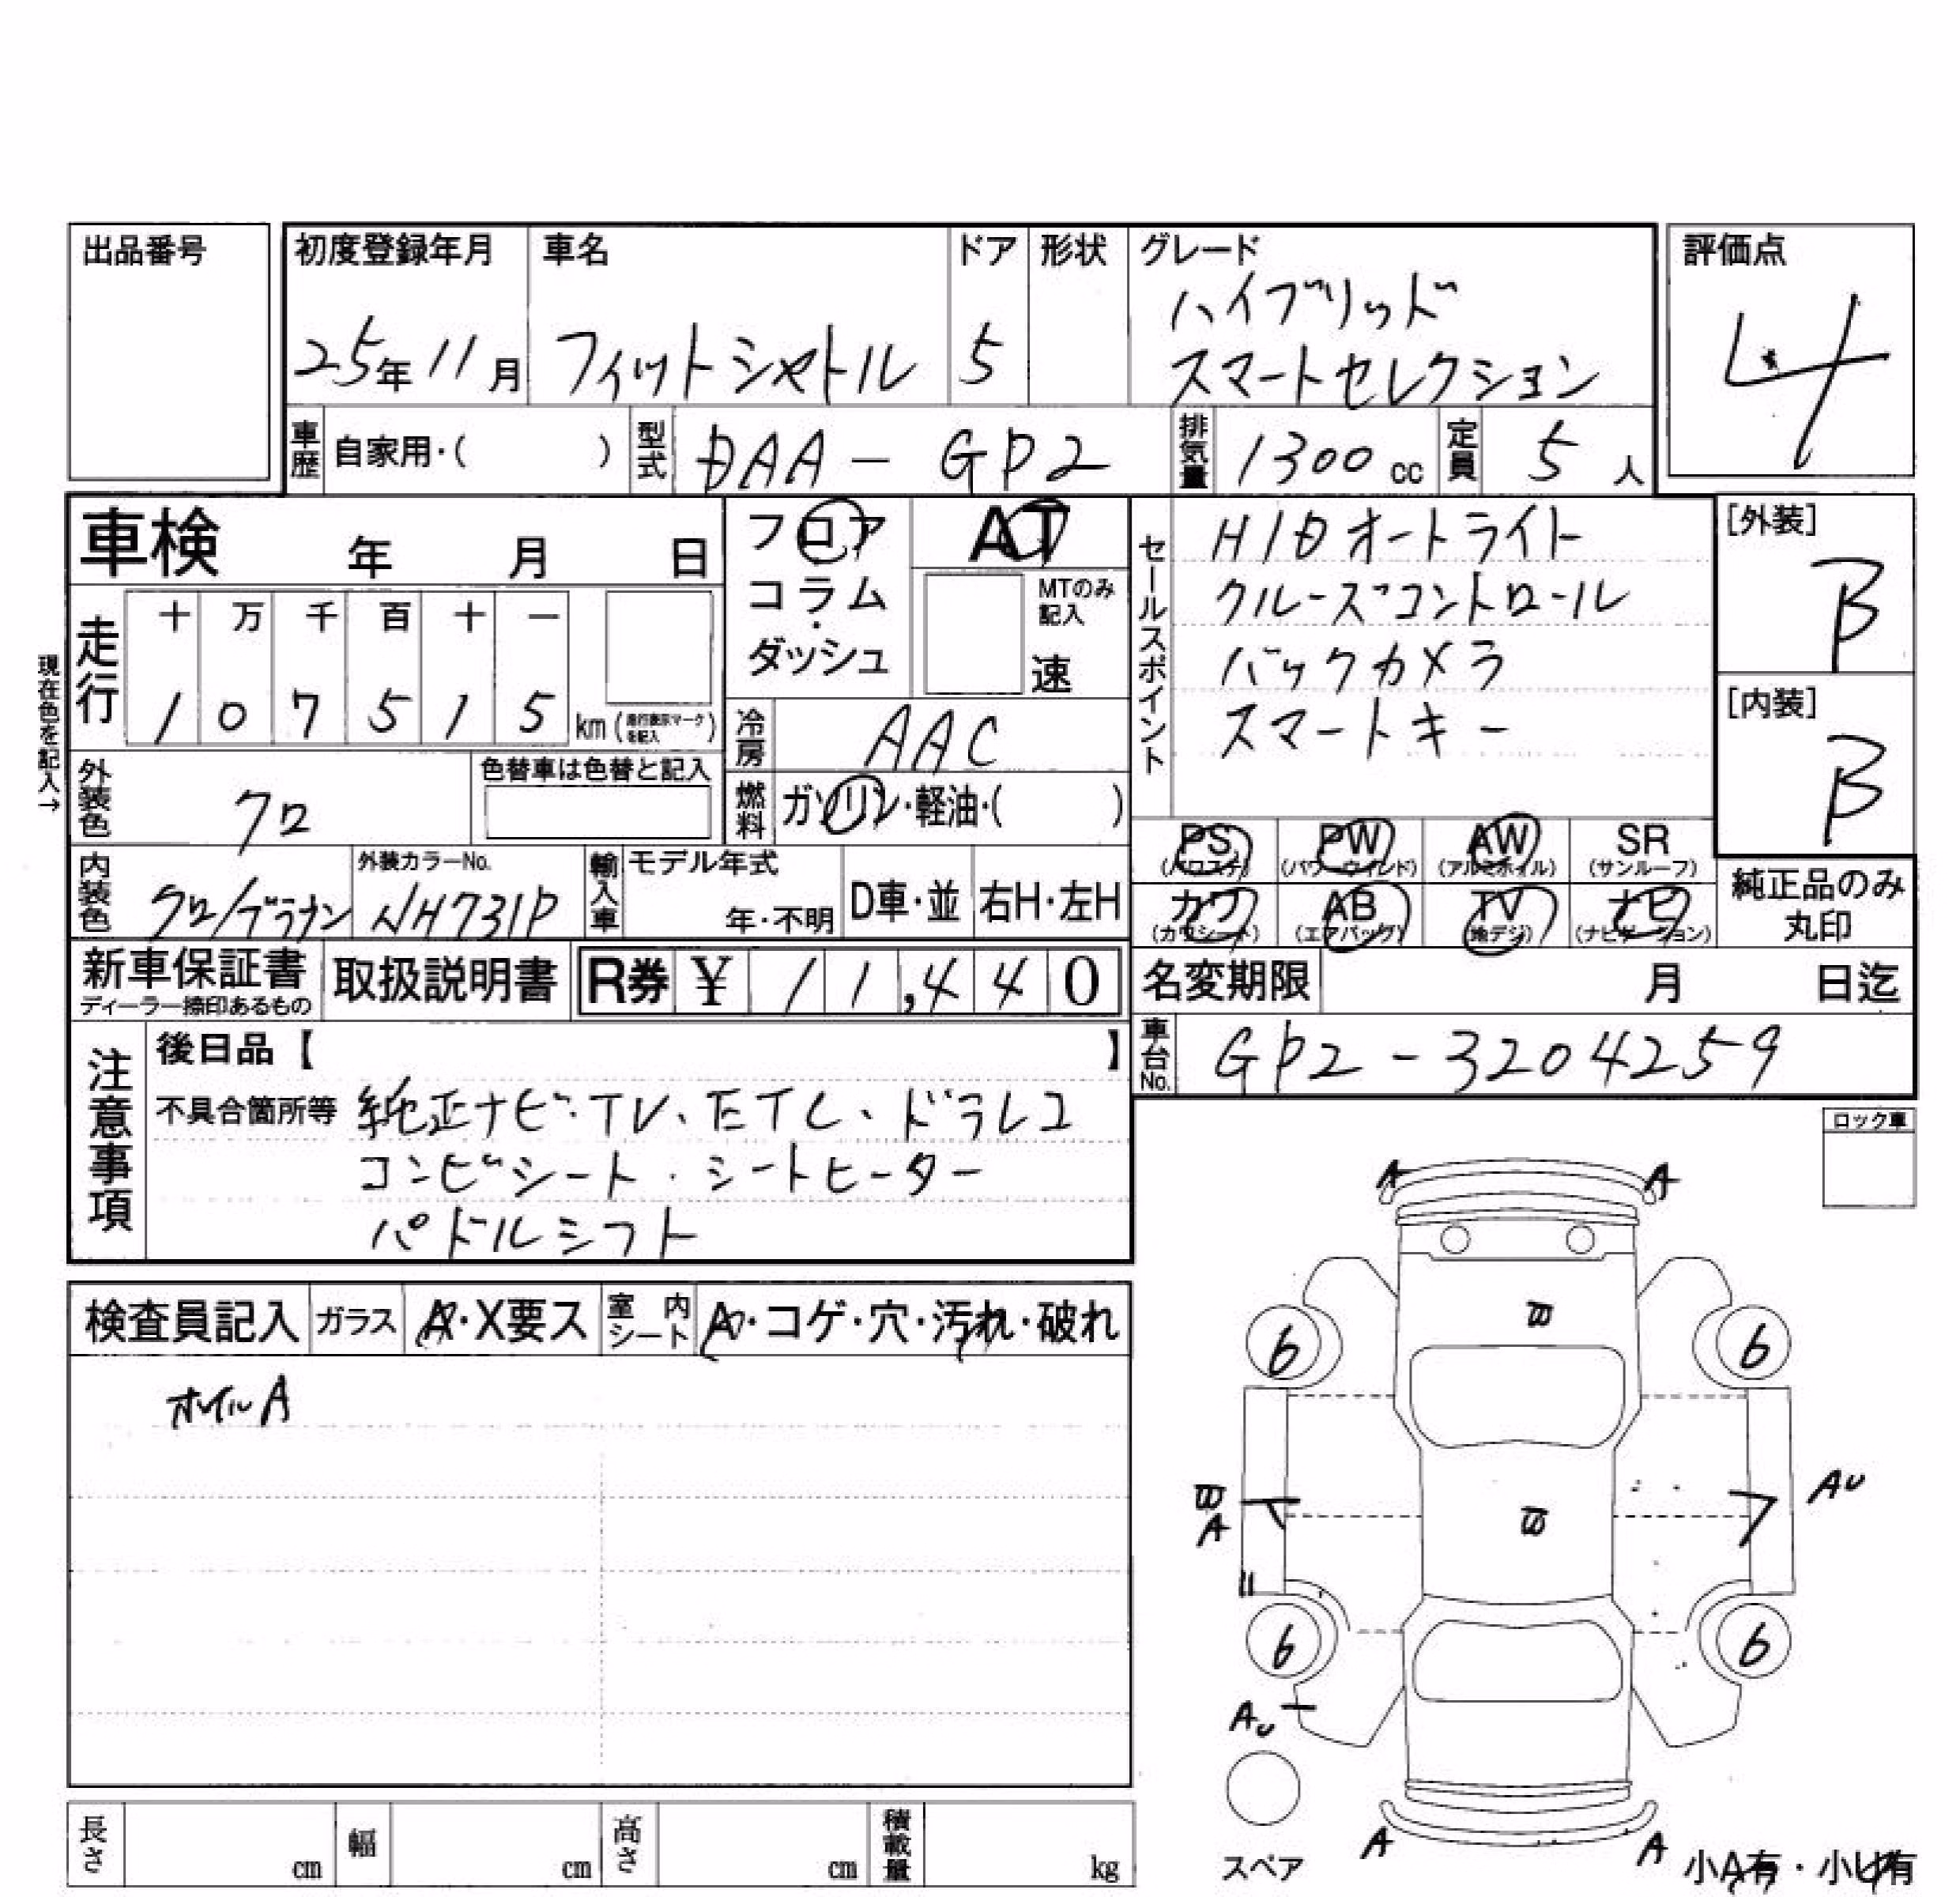 出品番号
初度登録年月 車名 ドア 形状 グレード 評価点
25年11月 フィットシャトル 5 ハイブリッド
スマートセレクション
4
車歴 自家用・( ) 型式 DAA-GP2 排気量 1300cc 定員 5人
車検 年 月 日
フロア
コラム・
ダッシュ
AT
MTのみ
記入
速
セールスポイント
HIDオートライト
クルーズコントロール
バックカメラ
スマートキー
[外装]
B
[内装]
B
現在色を記入→
走行 十 万 千 百 十 一
1 0 7 5 1 5 km (走行表示マークを記入)
冷房 AAC
燃料 ガソリン・軽油・( )
外装色 クロ 色替車は色替と記入
内装色 クロ/ブラウン 外装カラーNo. NH731P
輸入車 モデル年式 年・不明 D車・並 右H・左H
PS (パワステ) PW (パワーウインド) AW (アルミホイル) SR (サンルーフ)
カワ (カワシート) AB (エアバッグ) TV (地デジ) ナビ (ナビゲーション)
純正品のみ
丸印
新車保証書 取扱説明書 R券 ¥ 11,440
ディーラー捺印あるもの
名変期限 月 日迄
車台No. GP2-3204259
注意事項
後日品【 】
不具合箇所等 純正ナビ・TV、ETC、ドラレコ
コンビシート・シートヒーター
パドルシフト
ロック車
検査員記入 ガラス A・X要ス 室内シート A・コゲ・穴・汚れ・破れ
ホイルA
A A
6 6
A
AU
6 6
AU
A A
スペア
小A有・小U有
長さ cm 幅 cm 高さ cm 積載量 kg